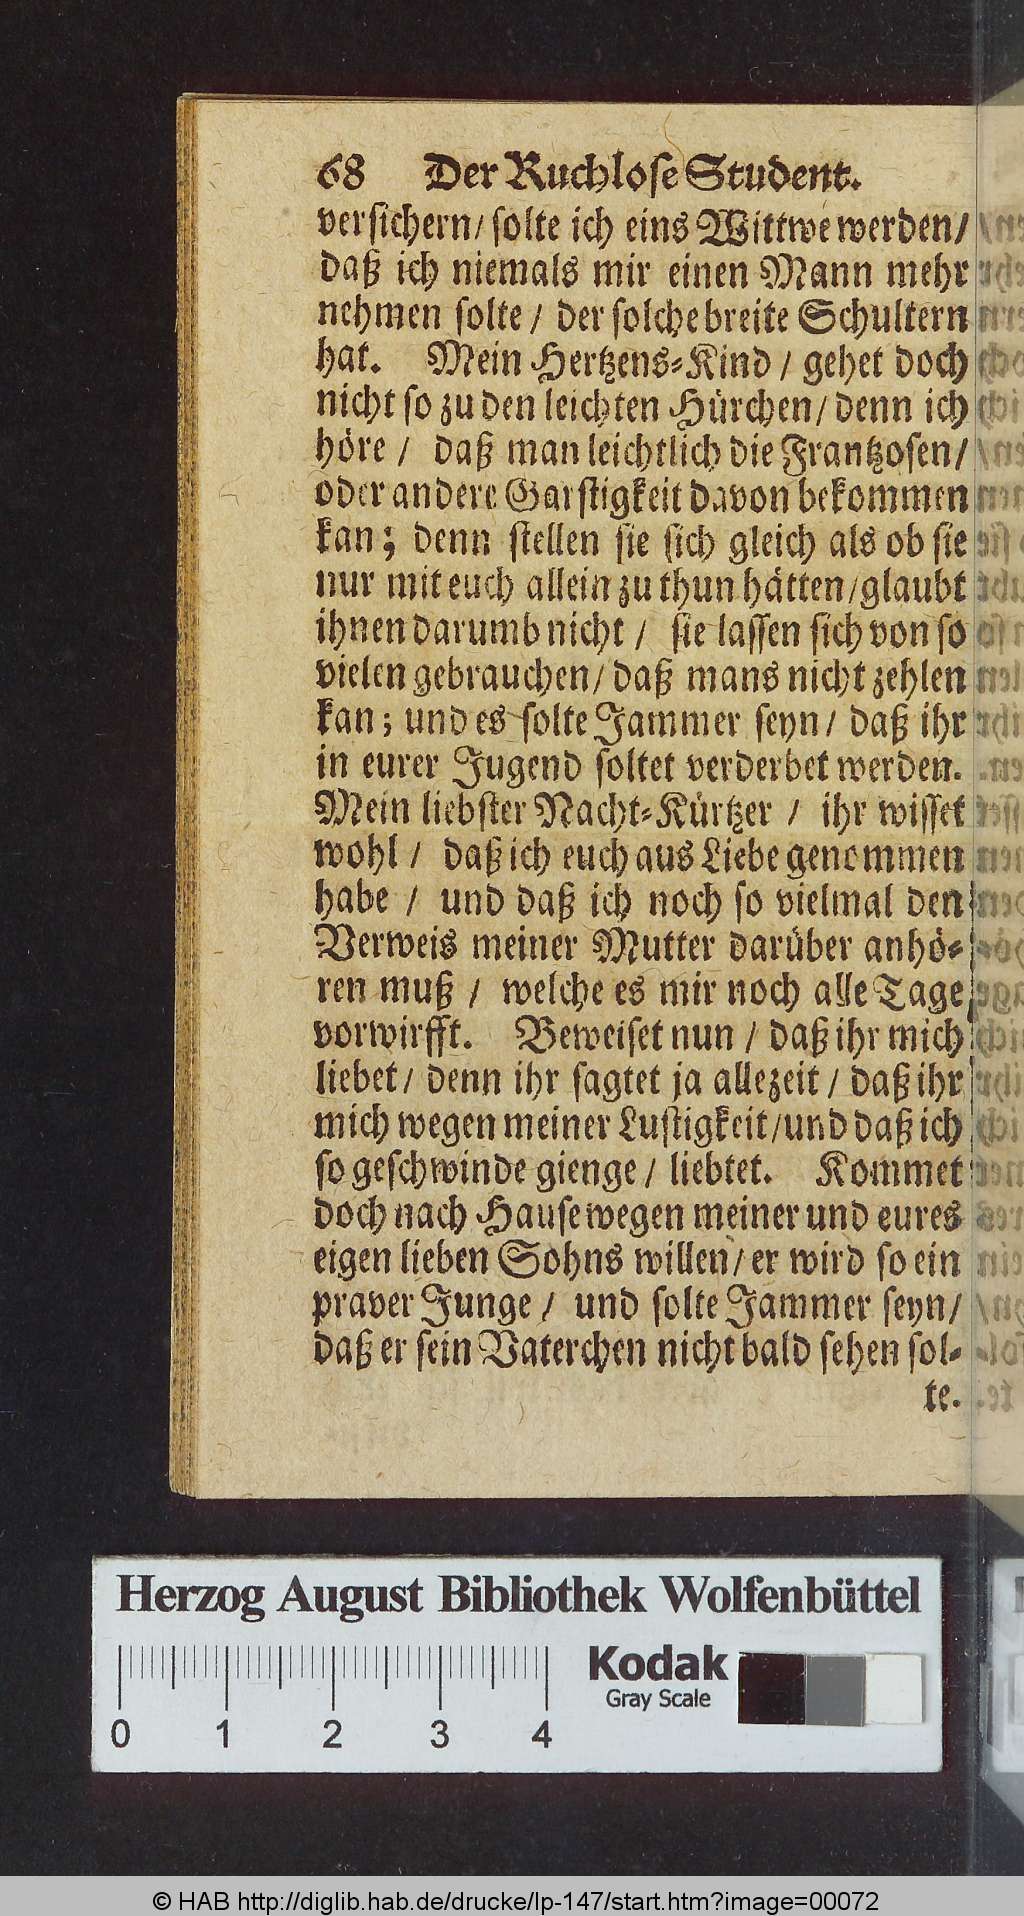 68 Der Ruchlose Student.
versichern/ solte ich eins Wittwe werden/
daß ich niemals mir einen Mann mehr
nehmen solte / der solche breite Schultern
hat. Mein Hertzens-Kind / gehet doch
nicht so zu den leichten Hürchen/ denn ich
höre / daß man leichtlich die Frantzosen/
oder andere Garstigkeit davon bekommen
kan; denn stellen sie sich gleich als ob sie
nur mit euch allein zu thun hätten/glaubt
ihnen darumb nicht / sie lassen sich von so
vielen gebrauchen/ daß mans nicht zehlen
kan; und es solte Jammer seyn/ daß ihr
in eurer Jugend soltet verderbet werden.
Mein liebster Nacht-Kürtzer / ihr wisset
wohl / daß ich euch aus Liebe genommen
habe / und daß ich noch so vielmal den
Verweis meiner Mutter darüber anhö-
ren muß / welche es mir noch alle Tage
vorwirfft. Beweiset nun / daß ihr mich
liebet/ denn ihr sagtet ja allezeit / daß ihr
mich wegen meiner Lustigkeit/und daß ich
so geschwinde gienge / liebtet. Kommet
doch nach Hause wegen meiner und eures
eigen lieben Sohns willen/ er wird so ein
praver Junge / und solte Jammer seyn/
daß er sein Vaterchen nicht bald sehen sol-
te.
Herzog August Bibliothek Wolfenbüttel
Kodak
Gray Scale
0 1 2 3 4
© HAB http://diglib.hab.de/drucke/lp-147/start.htm?image=00072